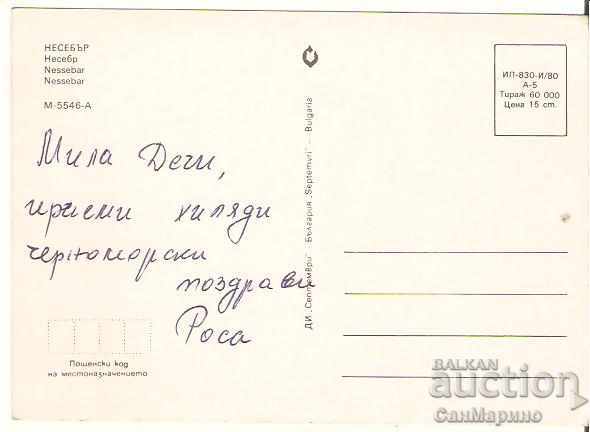 НЕСЕБЪР
Несебр
Nessebar
Nessebar
М-5546-А
Мила Дечи,
приеми хиляди
черноморски
поздрави
Роса
Пощенски код
на местоназначението
ДИ „Септември" — България „Septemvri" — Bulgaria
ИП-830-И/80
А-5
Тираж 60 000
Цена 15 ст.
BALKAN
auction
СанМарино